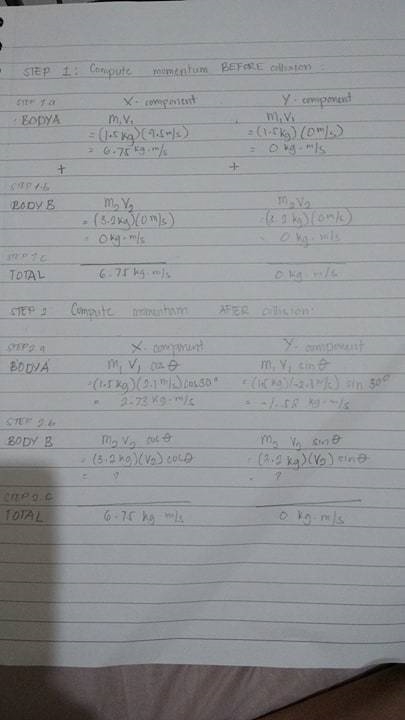 STEP 1: Compute momentum BEFORE collision:
STEP 1.a X-component Y-component
BODY A m₁V₁ m₁V₁
= (1.5kg)(4.5m/s) = (1.5kg)(0m/s)
= 6.75 kg·m/s = 0 kg·m/s
+ +
STEP 1.b
BODY B m₂V₂ m₂V₂
= (3.2kg)(0m/s) (3.2kg)(0m/s)
= 0kg·m/s 0 kg·m/s
STEP 1.c
TOTAL 6.75 kg·m/s 0 kg·m/s
STEP 2: Compute momentum AFTER collision:
STEP 2.a X-component Y-component
BODY A m₁ V₁ cos θ m₁ V₁ sin θ
= (1.5kg)(2.1m/s)cos30° = (1.5kg)(-2.1m/s) sin 30°
= 2.73 kg·m/s = -1.58 kg·m/s
STEP 2.b
BODY B m₂ V₂ cos θ m₂ V₂ sin θ
= (3.2kg)(V₂) cosθ (3.2kg)(V₂) sin θ
= ? ?
STEP 2.c
TOTAL 6.75 kg·m/s 0 kg·m/s